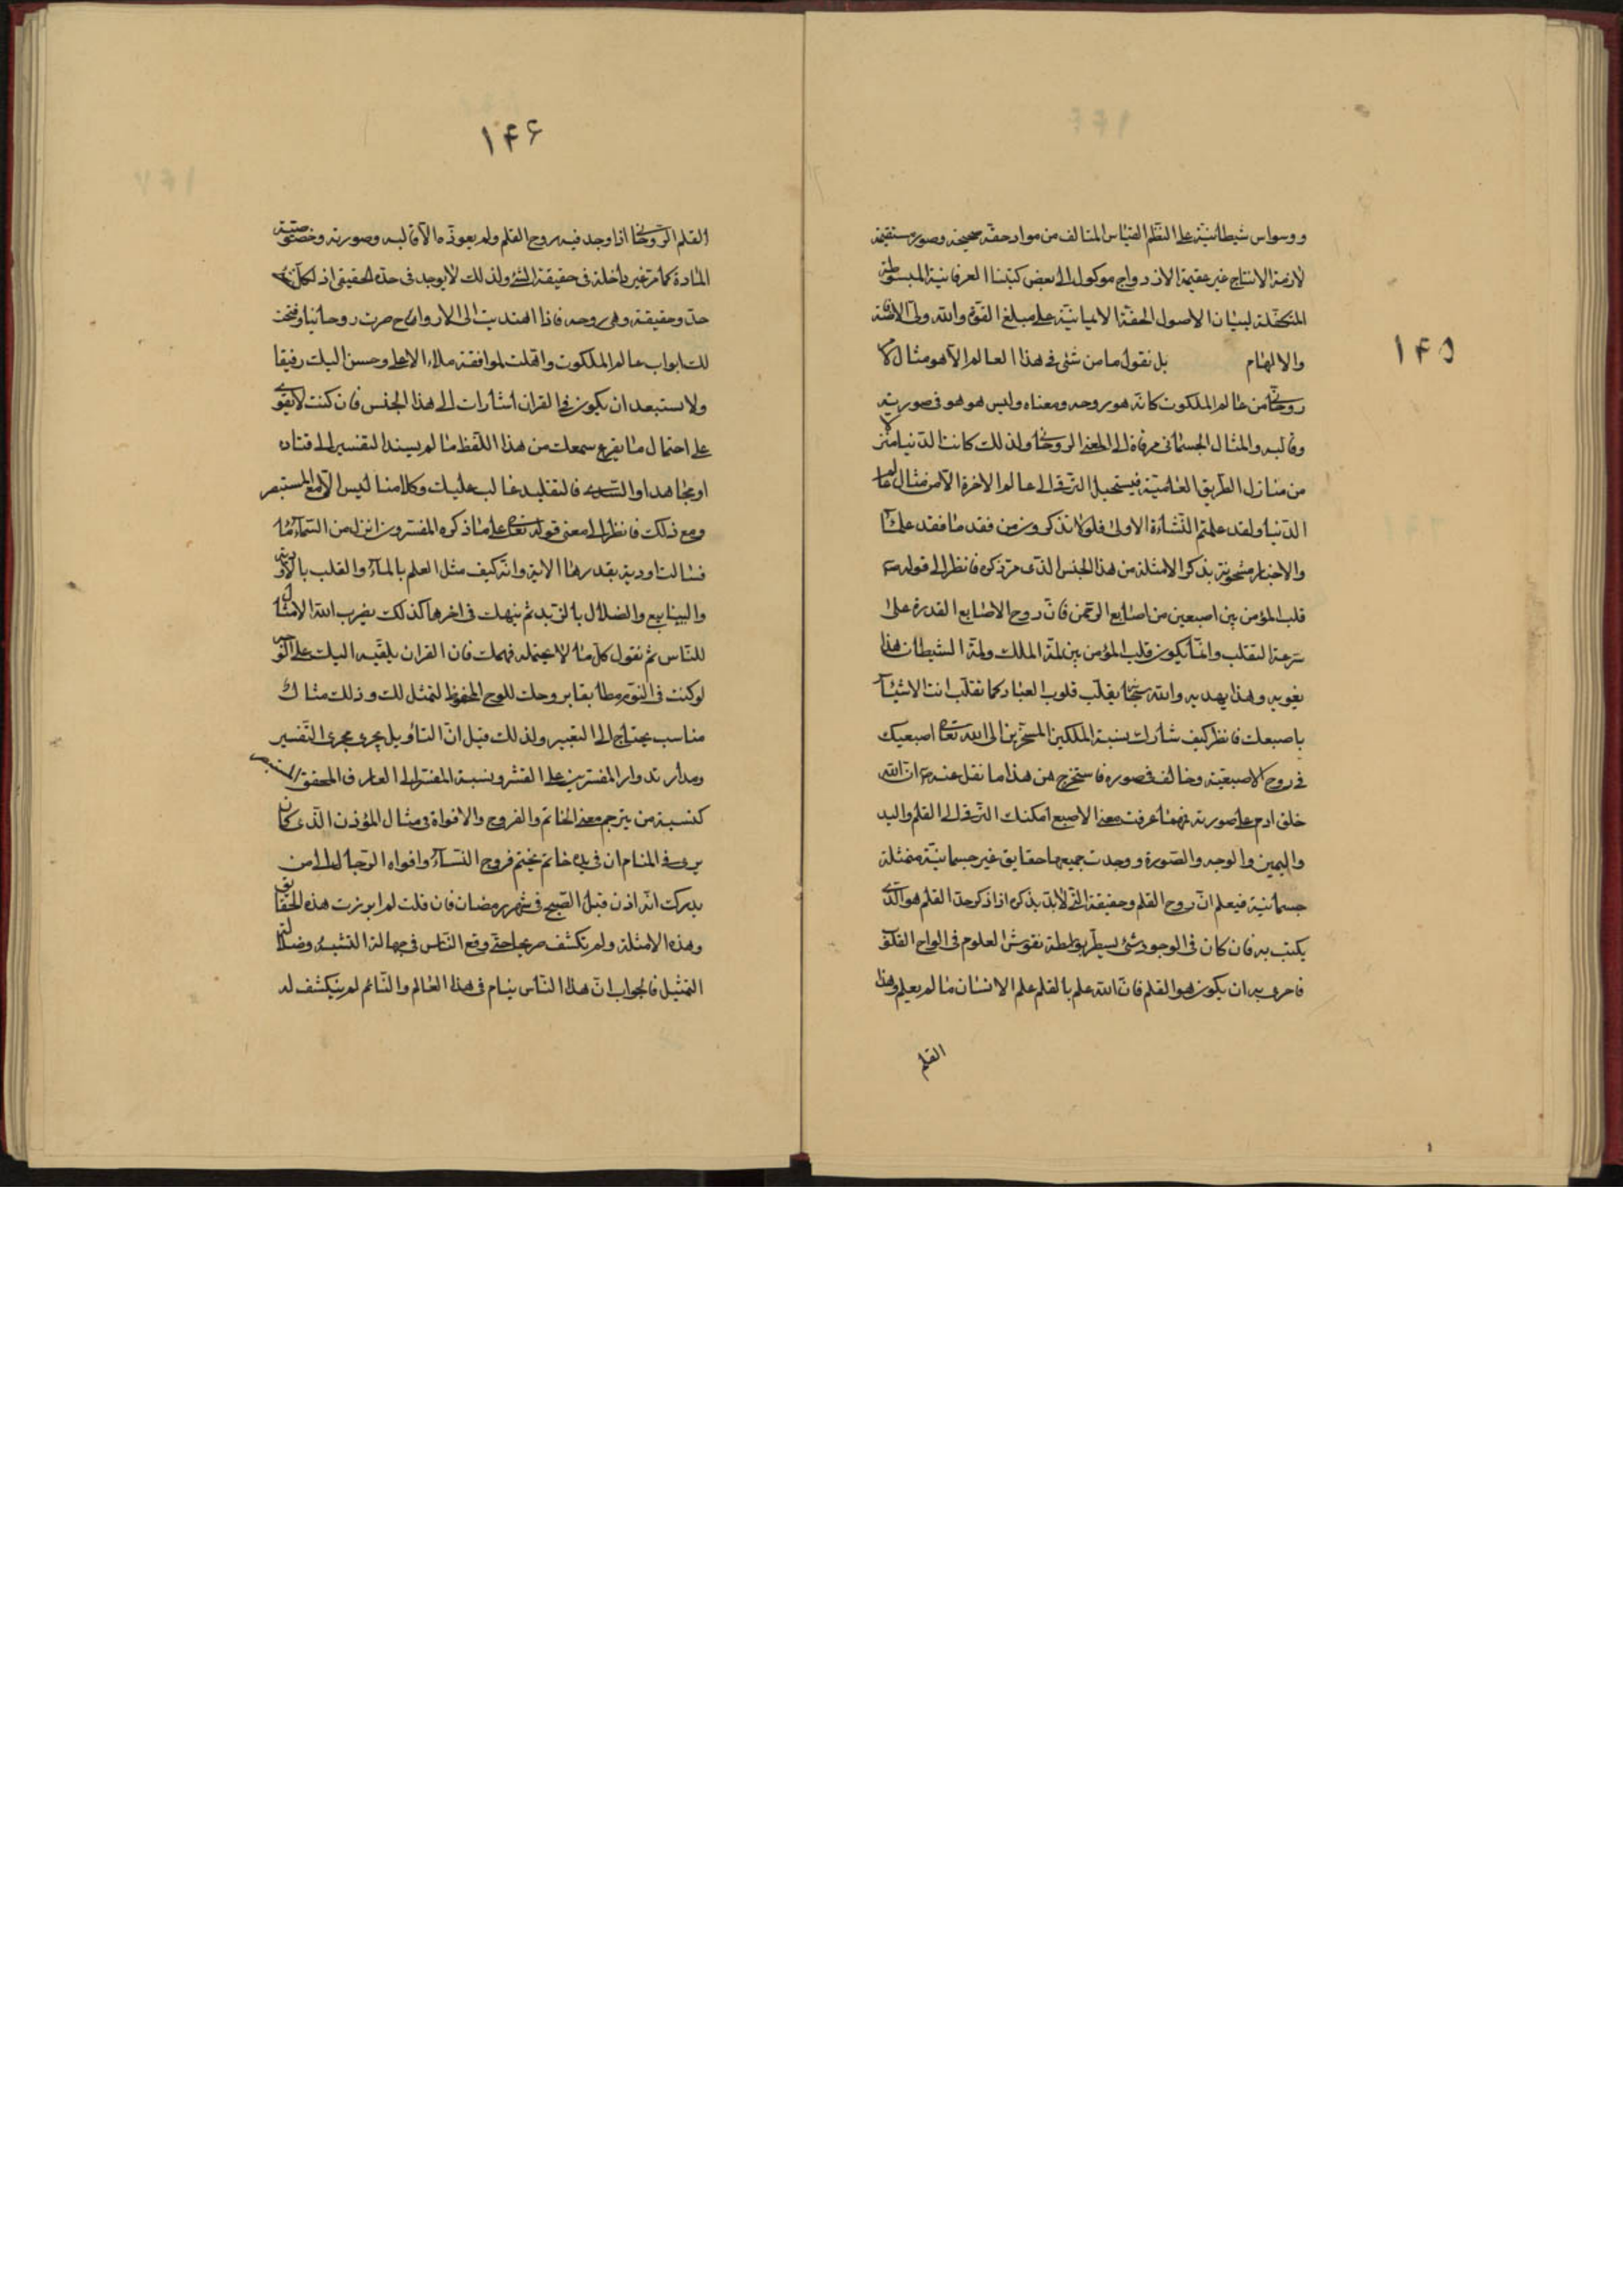 ١٤٥
ووسواس شيطانية على النظم القياس المتالف من مواد حقة صحيحة وصور مستقيمة
لازمة الانتاج غير عقيمة الازدواج موكول الى بعض كتبنا العرفانية المبسوطة
المتكفلة لبيان الاصول الحقة الايمانية على مبلغ القوة والله ولى الافاضة
والالهام بل نقول ما من شئ فى هذا العالم الا هو مثال لا
روحانى من عالم الملكوت كانه هو روحه ومعناه وليس هو هو فى صورته
وقالبه والمثال الجسمانى مرقاة الى المعنى الروحانى ولذلك كانت الدنيا منزلا
من منازل الطريق فيستحيل الترقى الى عالم الاخرة الا من مثال عالم
الدنيا ولقد علمتم النشاءة الاولى فلولا تذكرون من فقد ما فقد علما
والاخبار مشحونة بذكر الامثلة من هذا الجنس الذى مر ذكره فانظر الى قوله ص
قلب المؤمن بين اصبعين من اصابع الرحمن فان روح الاصابع القدرة على
سرعة التقلب وانما يكون قلب المؤمن بين لمة الملك ولمة الشيطان هذا
يغويه وهذا يهديه والله سبحانه يقلب قلوب العباد كما تقلب انت الاشياء
باصبعك فانظر كيف شارك نسبة الملكين المسخرين الى الله تعالى اصبعيك
فى روح الاصبعية وخالف فى صورة فاستخرج من هذا ما نقل عنه ص ان الله
خلق ادم على صورته فمهما عرفت معنى الاصبع امكنك الترقى الى القلم واليد
واليمين والوجه والصورة ووجدت جميعها حقايق غير جسمانية متمثلة
جسمانية فيعلم ان روح القلم وحقيقة التى لابد بذكره اذا ذكر حد القلم هو الذى
يكتب به فان كان فى الوجود شئ يسطر بواسطة نقوش العلوم فى الواح القلوب
فاحرى به ان يكون هو القلم فان الله علم بالقلم علم الانسان ما لم يعلم وهذا
القلم
١٤٦
القلم الروحانى اذا وجد فيه روح القلم ولم يعوذه الا قالبه وصورته وخصوصية
المادة كما مر غير داخلة فى حقيقة الشئ ولذلك لا يوجد فى حده الحقيقى اذ لكل شئ
حد وحقيقة وهى روحه فاذا اهتديت الى الارواح صرت روحانيا وفتحت
لك ابواب عالم الملكوت واهلت لموافقة ملاء الاعلى وحسن اليك رفيقا
ولا يستبعد ان يكون فى القران اشارات الى هذا الجنس فان كنت لا تقوى
على احتمال ما يقرع سمعك من هذا اللفظ ما لم يسند التفسير الى قتاده
او مجاهد او السدى فالتقليد غالب عليك وكلامنا ليس الا مع المستبصر
ومع ذلك فانظر الى معنى قوله تعالى على ما ذكره المفسرون انزل من السماء ماء
فسالت اودية بقدرها الاية وانه كيف مثل العلم بالماء والقلب بالاودية
والينابيع والضلال بالزبد ثم نبهك فى اخرها كذلك يضرب الله الامثال
للناس ثم نقول كل ما لا يحتمله فهمك فان القران يلقيه اليك على الوجه
لو كنت فى النوم مطابقا بروحك للوح المحفوظ لتمثل لك وذلك مثال
مناسب يحتاج الى التعبير ولذلك قيل ان التأويل يجرى مجرى التفسير
ومدار تدوار المفسرين على القشر ونسبة المفسر الى العارف المحقق المستبصر
كنسبة من يترجم معنى الخاتم والفروج والافواه فى مثال المؤذن الذى كان
يرى فى المنام ان فى يده خاتم يختم فروج النساء وافواه الرجال الى من
يدرك انه اذن قبل الصبح فى شهر رمضان فان قلت لم ابرزت هذه الحقايق
وهذه الامثلة ولم تكشف صريحا حتى وقع الناس فى جهالة التشبيه وضلالة
التمثيل فالجواب ان هذا الناس نيام فى هذا العالم والنائم لم ينكشف له